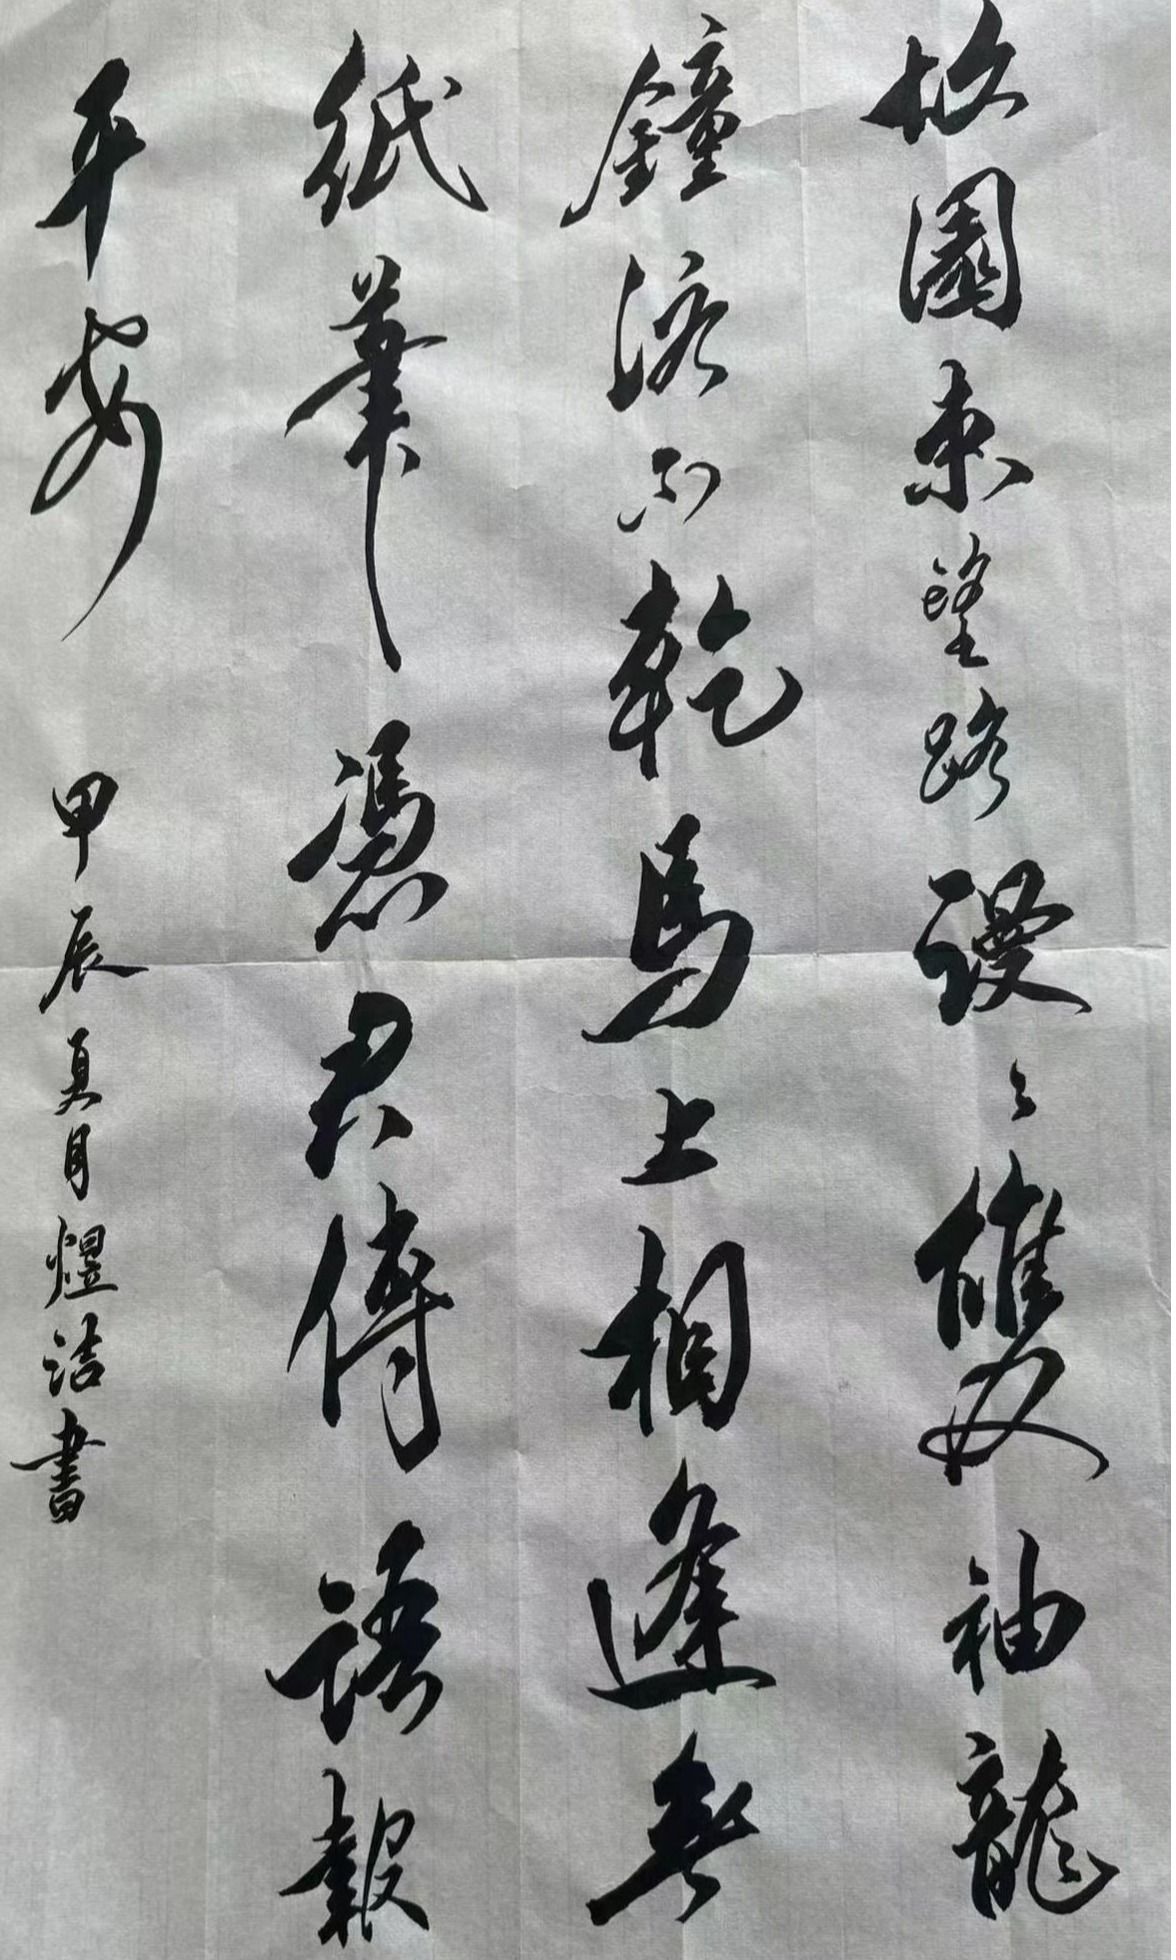 故園東望路謾々雙袖龍
鐘淚不乾馬上相逢無
紙筆憑君傳語報
平安 甲辰夏月煜洁書